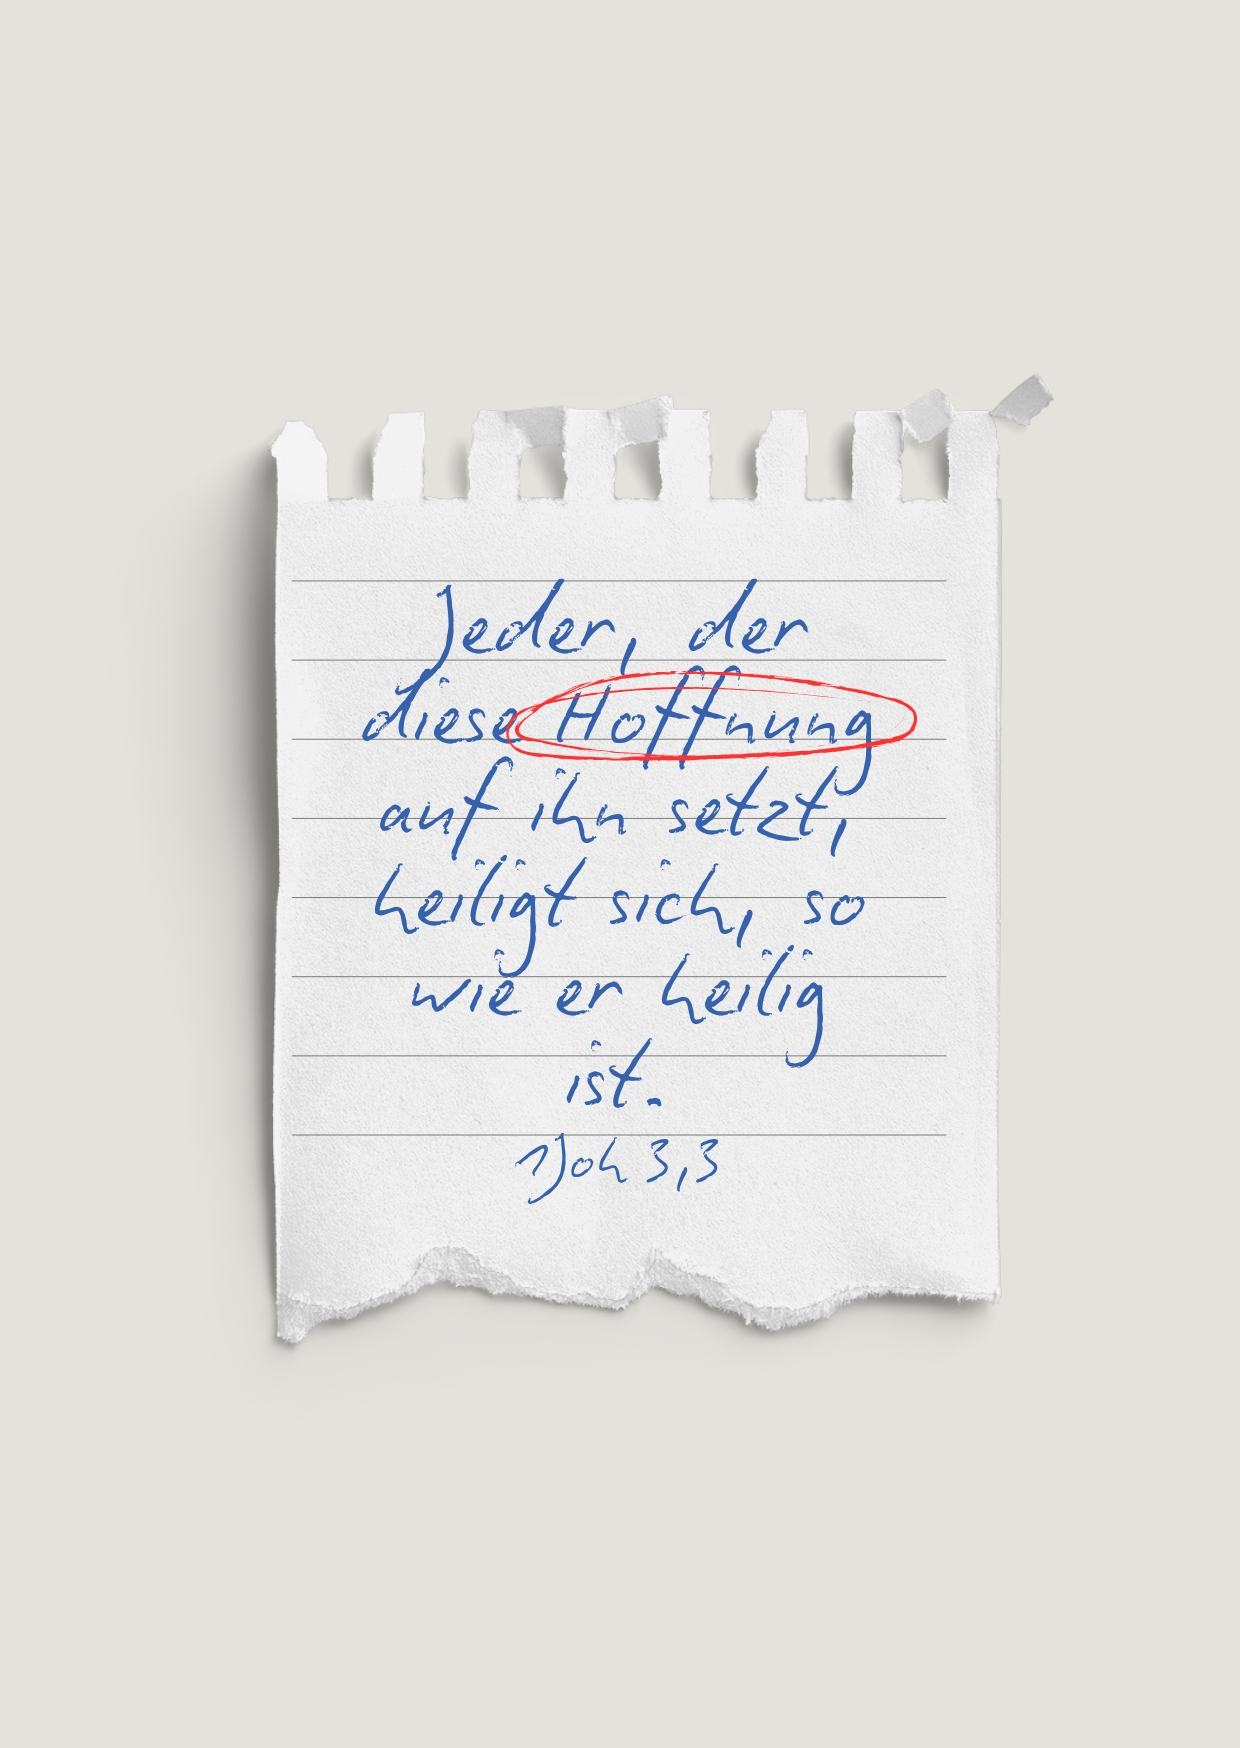 Jeder, der
diese Hoffnung
auf ihn setzt,
heiligt sich, so
wie er heilig
ist.
1Joh 3,3